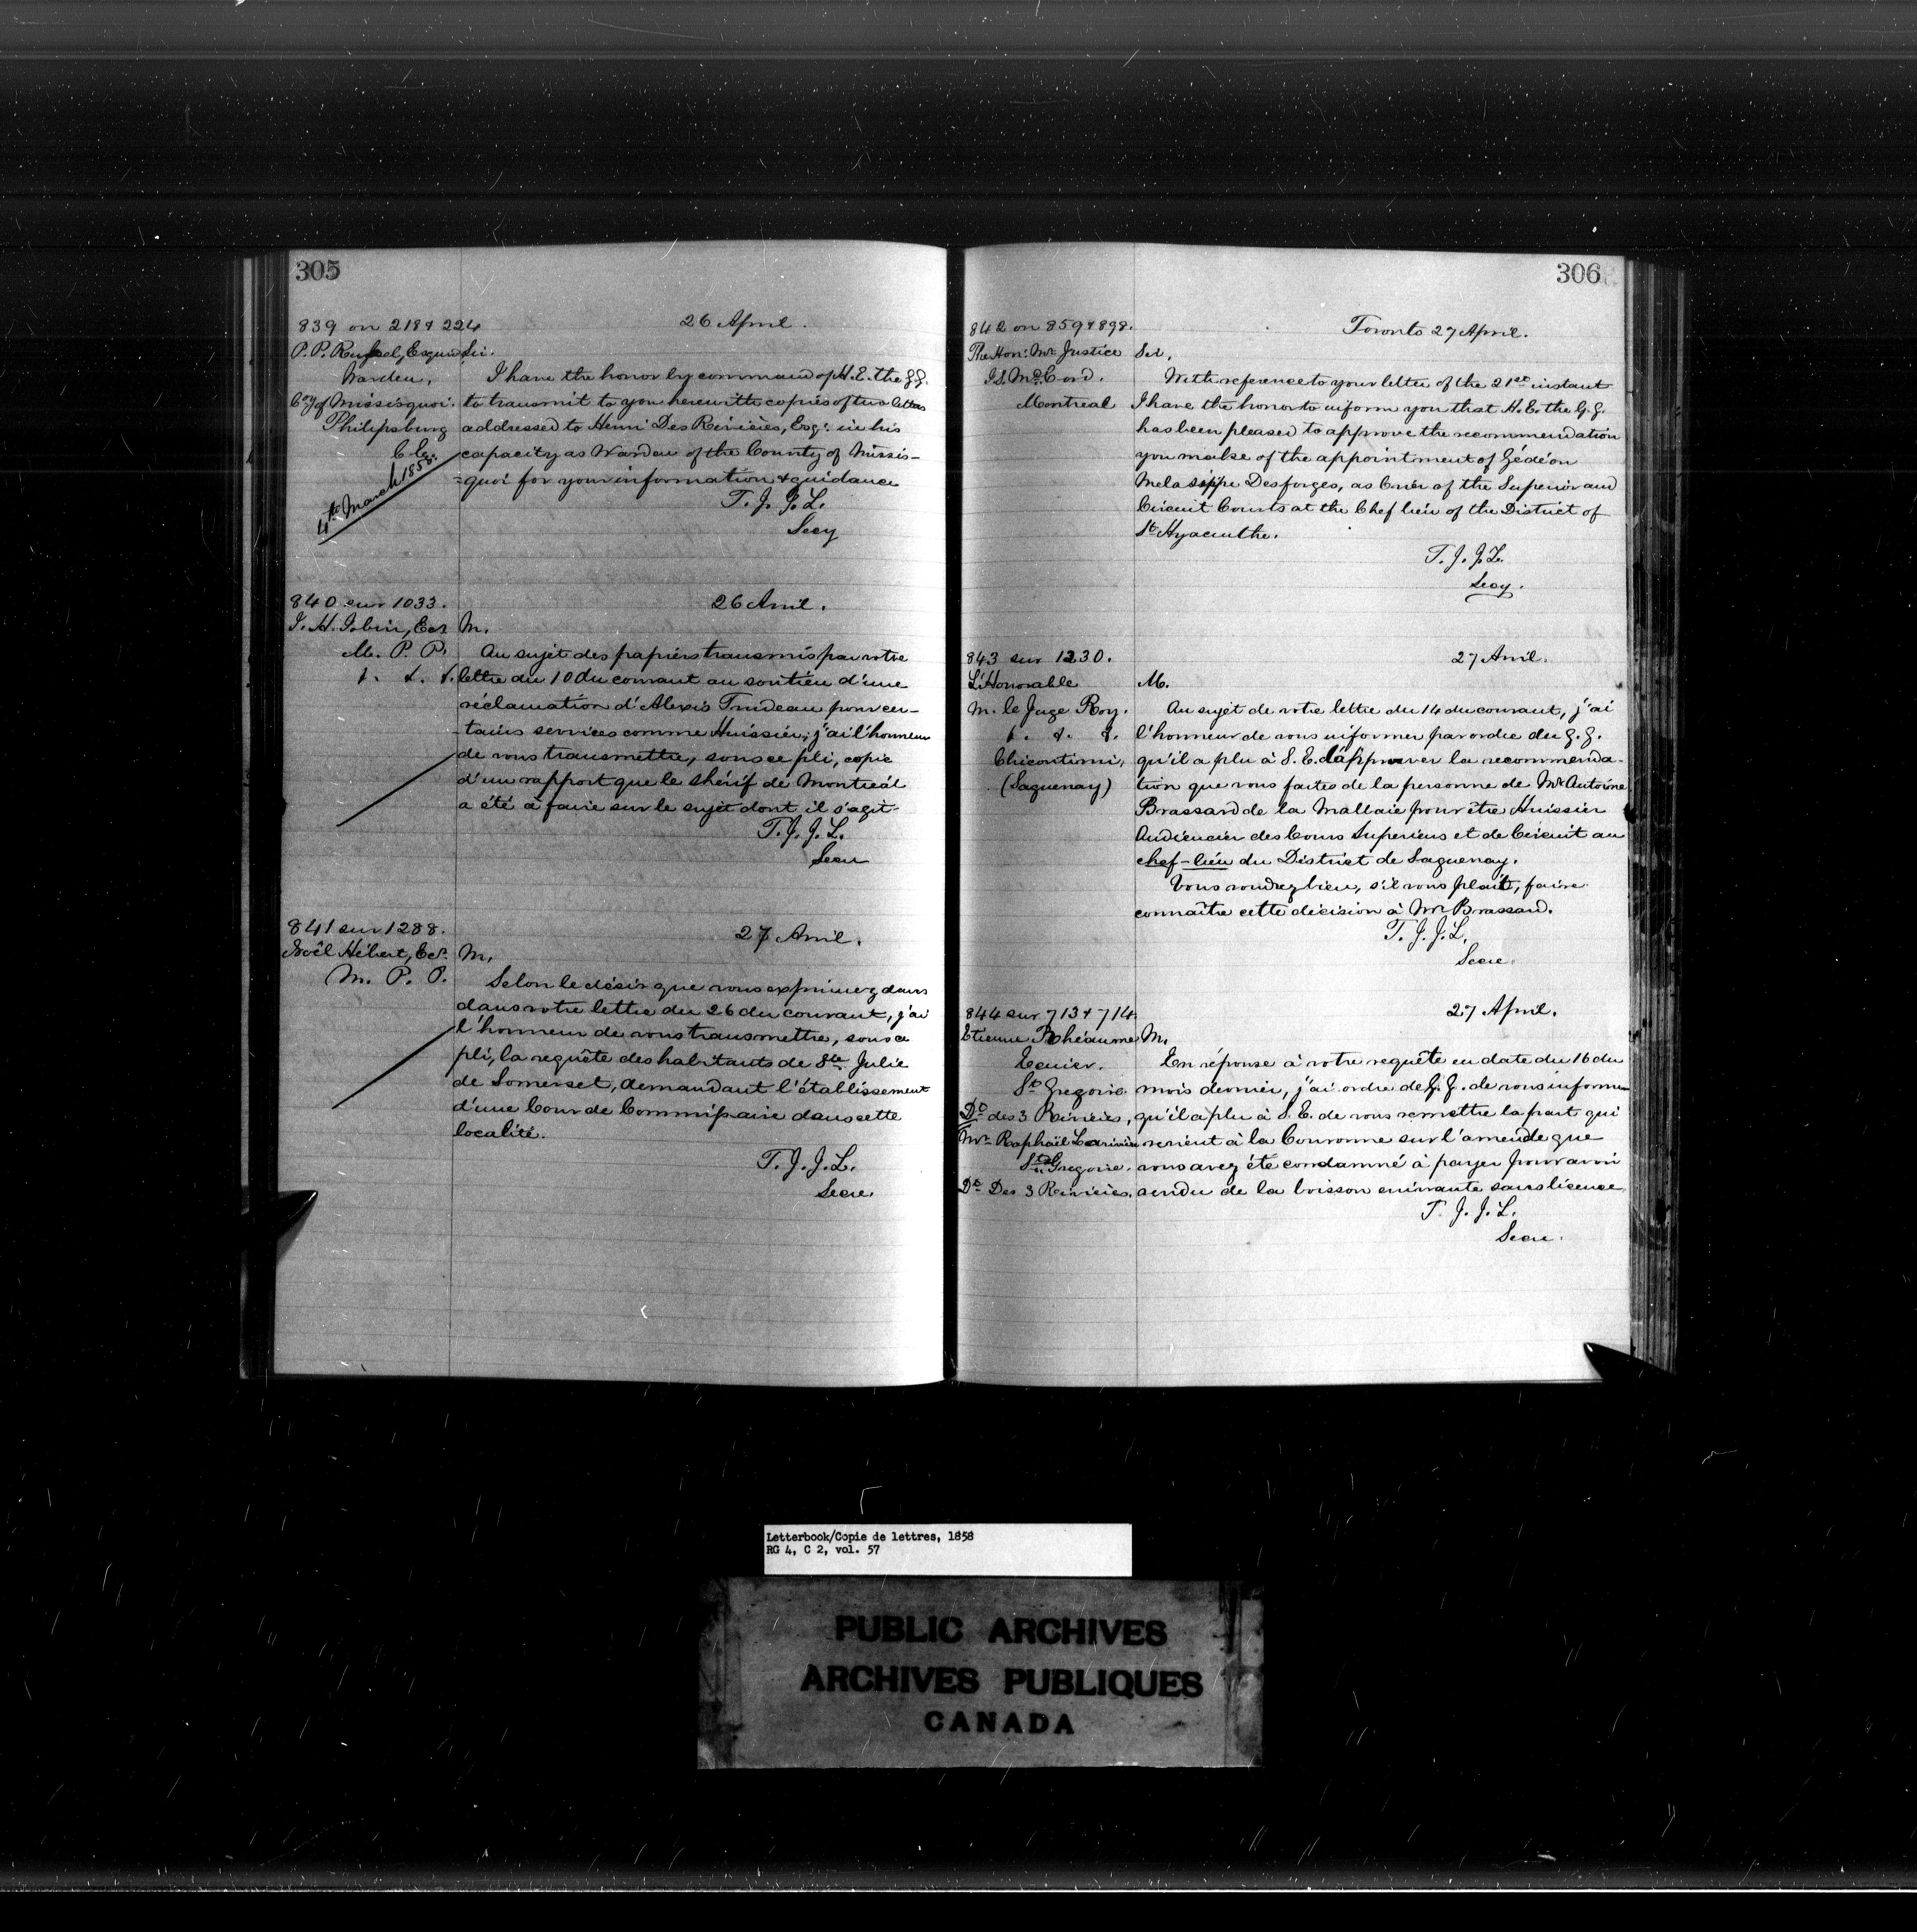 305
839 on 218 & 224
26 April.
P. P. Russel, Esquire
Warden,
Coy of Missisquoi.
Philipsburg
C. E.
4th March 1858.
Sir.
I have the honor by command of H. E. the G. G.
to transmit to you herewith copies of two letters
addressed to Henri Des Rivières, Esqr. in his
capacity as Warden of the County of Missis-
=quoi for your information & guidance
T. J. J. L.
Secy
840 sur 1033.
26 Avril.
J. H. Jobin, Ecr
M. P. P.
&. &. &.
M.
Au sujet des papiers transmis par votre
lettre du 10 du courant au soutien d'une
réclamation d'Alexis Trudeau pour cer-
-tains services comme Huissier; j'ai l'honneur
de vous transmettre, sous ce pli, copie
d'un rapport que le shérif de Montreál
a été à faire sur le sujet dont il s'agit
T. J. J. L.
Secre
841 sur 1288.
27 Avril.
Noël Hébert, Ecr.
M. P. P.
M,
Selon le désir que vous exprimez dans
dans votre lettre du 26 du courant, j'ai
l'honneur de vous transmettre, sous ce
pli, la requête des habitants de Ste Julie
de Somerset, demandant l'établissement
d'une Cour de Commissaire dans cette
localité.
T. J. J. L.
Secre.
306
842 on 859 & 898.
Toronto 27 April.
The Hon: Mr Justice
McCord.
Montreal
Sir,
With reference to your letter of the 21st instant
I have the honor to inform you that H. E. the G. G.
has been pleased to approve the recommendation
you make of the appointment of Gédéon
Melasippe Desforges, as Crier of the Superior and
Circuit Courts at the Chef lieu of the District of
St Hyacinthe.
T. J. J. L.
Secy.
843 sur 1230.
27 Avril.
L'Honorable
M. le Juge Roy.
&. &. &.
Chicoutimi,
(Saguenay)
M.
Au sujet de votre lettre du 14 du courant, j'ai
l'honneur de vous informer par ordre du G. G.
qu'il a plu à S. E. d'approuver la recommenda-
tion que vous faites de la personne de Mr Antoine
Brassard de la Malbaie pour être Huissier
Audiencier des Cours Superieurs et de Circuit au
chef-lieu du District de Saguenay.
Vous voudrez bien, s'il vous plait, faire
connaître cette décision à Mr Brassard.
T. J. J. L.
Secre.
844 sur 713 & 714.
27 April.
Etienne Rhéaume
St Gregoire.
Dt des 3 Rivières,
Mr Raphaël Larivière
St Gregoire.
Dt Des 3 Rivières.
M,
En réponse à votre requête en date du 16 du
mois dernier, j'ai ordre de G. G. de vous informer
qu'il a plu à S. E. de vous remettre la part qui
revient à la Couronne sur l'amende que
vous avez été condamné à payer pour avoir
vendu de la boisson enivrante sans licence
T. J. J. L.
Secre.
Letterbook/Copie de lettres, 1858
RG 4, C 2, vol. 57
PUBLIC ARCHIVES
ARCHIVES PUBLIQUES
CANADA